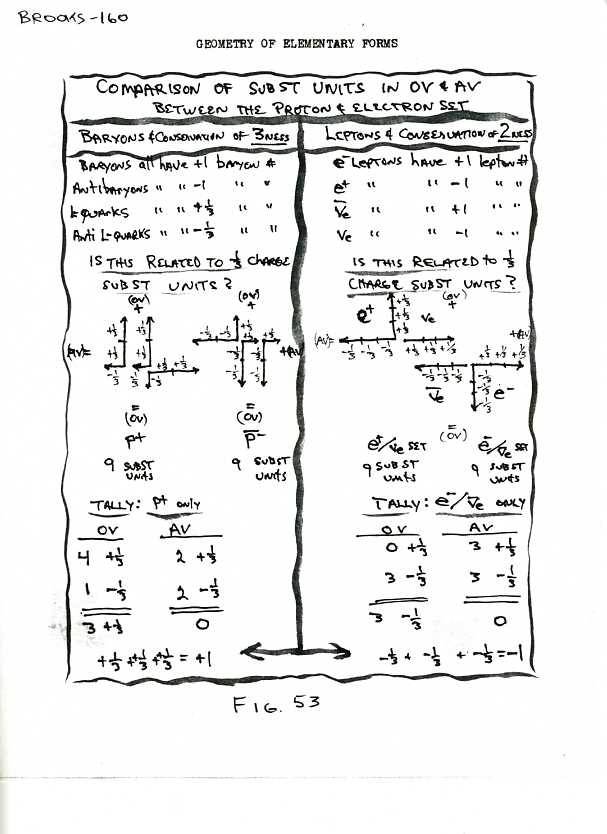 BROOKS-160
GEOMETRY OF ELEMENTARY FORMS
COMPARISON OF SUBST UNITS IN OV & AV
BETWEEN THE PROTON & ELECTRON SET
BARYONS & CONSERVATION OF 3NESS
BARYONS all HAVE +1 BARYON #
ANTIBARYONS " " -1 " "
L-QUARKS " " +1/3 " "
ANTI L-QUARKS " " -1/3 " "
IS THIS RELATED TO 1/3 CHARGE
SUBST UNITS?
(OV) (OV)
+ +
+1/3 +1/3 -1/3 -1/3 +1/3
(AV)= +1/3 +1/3 +1/3 +1/3 -1/3 -1/3 +AV
-1/3 -1/3 -1/3 -1/3 -1/3
= =
(OV) (OV)
P+ P̅-
9 SUBST 9 SUBST
UNITS UNITS
TALLY: P+ ONLY
OV AV
4 +1/3 2 +1/3
1 -1/3 2 -1/3
3 +1/3 0
+1/3 +1/3 +1/3 = +1
LEPTONS & CONSERVATION OF 2NESS
e- LEPTONS HAVE +1 lepton #
e+ " " -1 " "
V̅e " " +1 " "
Ve " " -1 " "
IS THIS RELATED TO 1/3
CHARGE SUBST UNITS?
(OV) (OV)
+ +
e+ +1/3 Ve
+1/3 +AV
(AV)= +1/3 +1/3 +1/3 +1/3
-1/3 -1/3 -1/3 +1/3 +1/3 +1/3
-1/3 -1/3 -1/3 -1/3
V̅e -1/3 e-
-1/3
=
(OV)
e+/Ve SET e-/V̅e SET
9 SUBST 9 SUBST
UNITS UNITS
TALLY: e-/V̅e ONLY
OV AV
0 +1/3 3 +1/3
3 -1/3 3 -1/3
3 -1/3 0
-1/3 + -1/3 + -1/3 = -1
FIG. 53